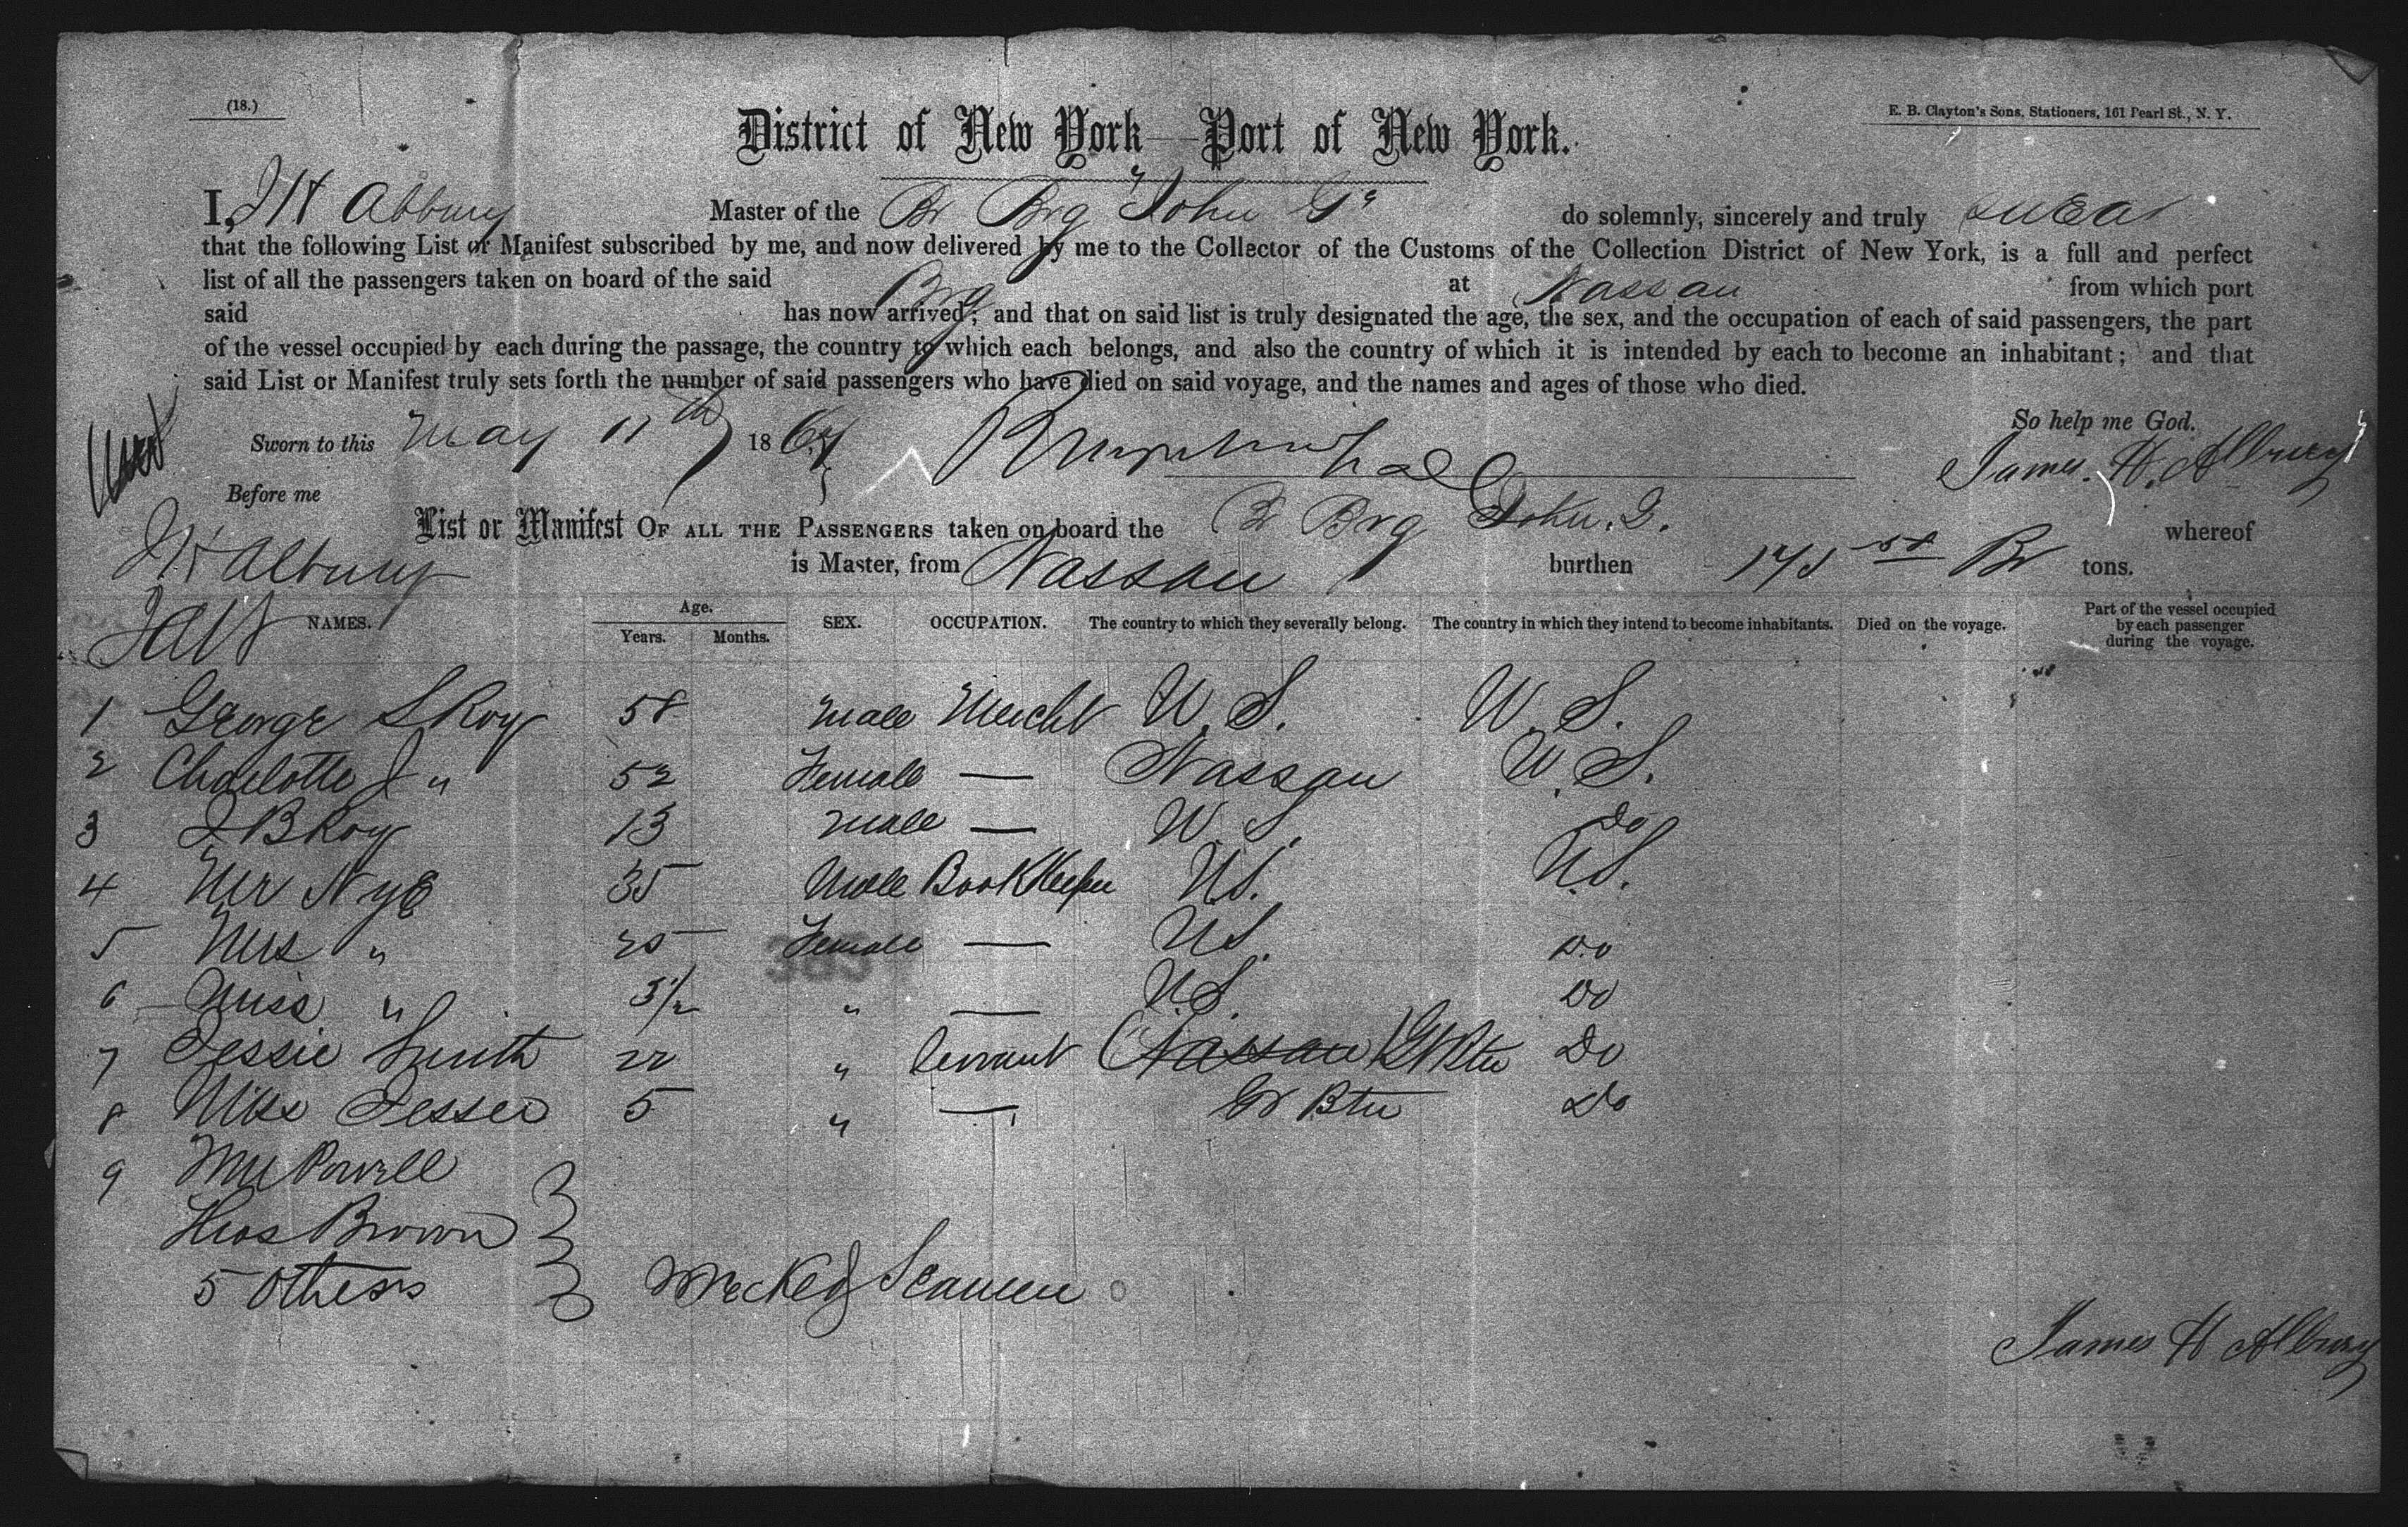 (18.)
E. B. Clayton's Sons, Stationers, 161 Pearl St., N. Y.
District of New York—Port of New York.
I, J H Albury Master of the Br Brg John G do solemnly, sincerely and truly swear
that the following List or Manifest subscribed by me, and now delivered by me to the Collector of the Customs of the Collection District of New York, is a full and perfect
list of all the passengers taken on board of the said Brg at Nassau from which port
said has now arrived; and that on said list is truly designated the age, the sex, and the occupation of each of said passengers, the part
of the vessel occupied by each during the passage, the country to which each belongs, and also the country of which it is intended by each to become an inhabitant; and that
said List or Manifest truly sets forth the number of said passengers who have died on said voyage, and the names and ages of those who died.
So help me God.
Sworn to this May 11th 186
James. H. Albury
Before me
List or Manifest OF ALL THE PASSENGERS taken on board the Br Brg John. G. whereof
J H Albury is Master, from Nassau burthen 175 Br tons.
NAMES. Age. Years. Months. SEX. OCCUPATION. The country to which they severally belong. The country in which they intend to become inhabitants. Died on the voyage. Part of the vessel occupied by each passenger during the voyage.
1 George S Roy 58 Male Mercht U. S. U. S.
2 Charlotte J " 52 Female — Nassau U. S.
3 J B Roy 13 Male — U. S. Do
4 Mr Nye 35 Male Book Keeper U S. U. S.
5 Mrs " 25 Female — U S. Do
6 Miss " 3 1/2 " — U. S. Do
7 Jessie Smith 22 " Servant Nassau Gr Btn Do
8 Miss Jesse 5 " — Gr Btn Do
9 Powell
Thos Brown
5 Others Wrecked Seamen
James H Albury